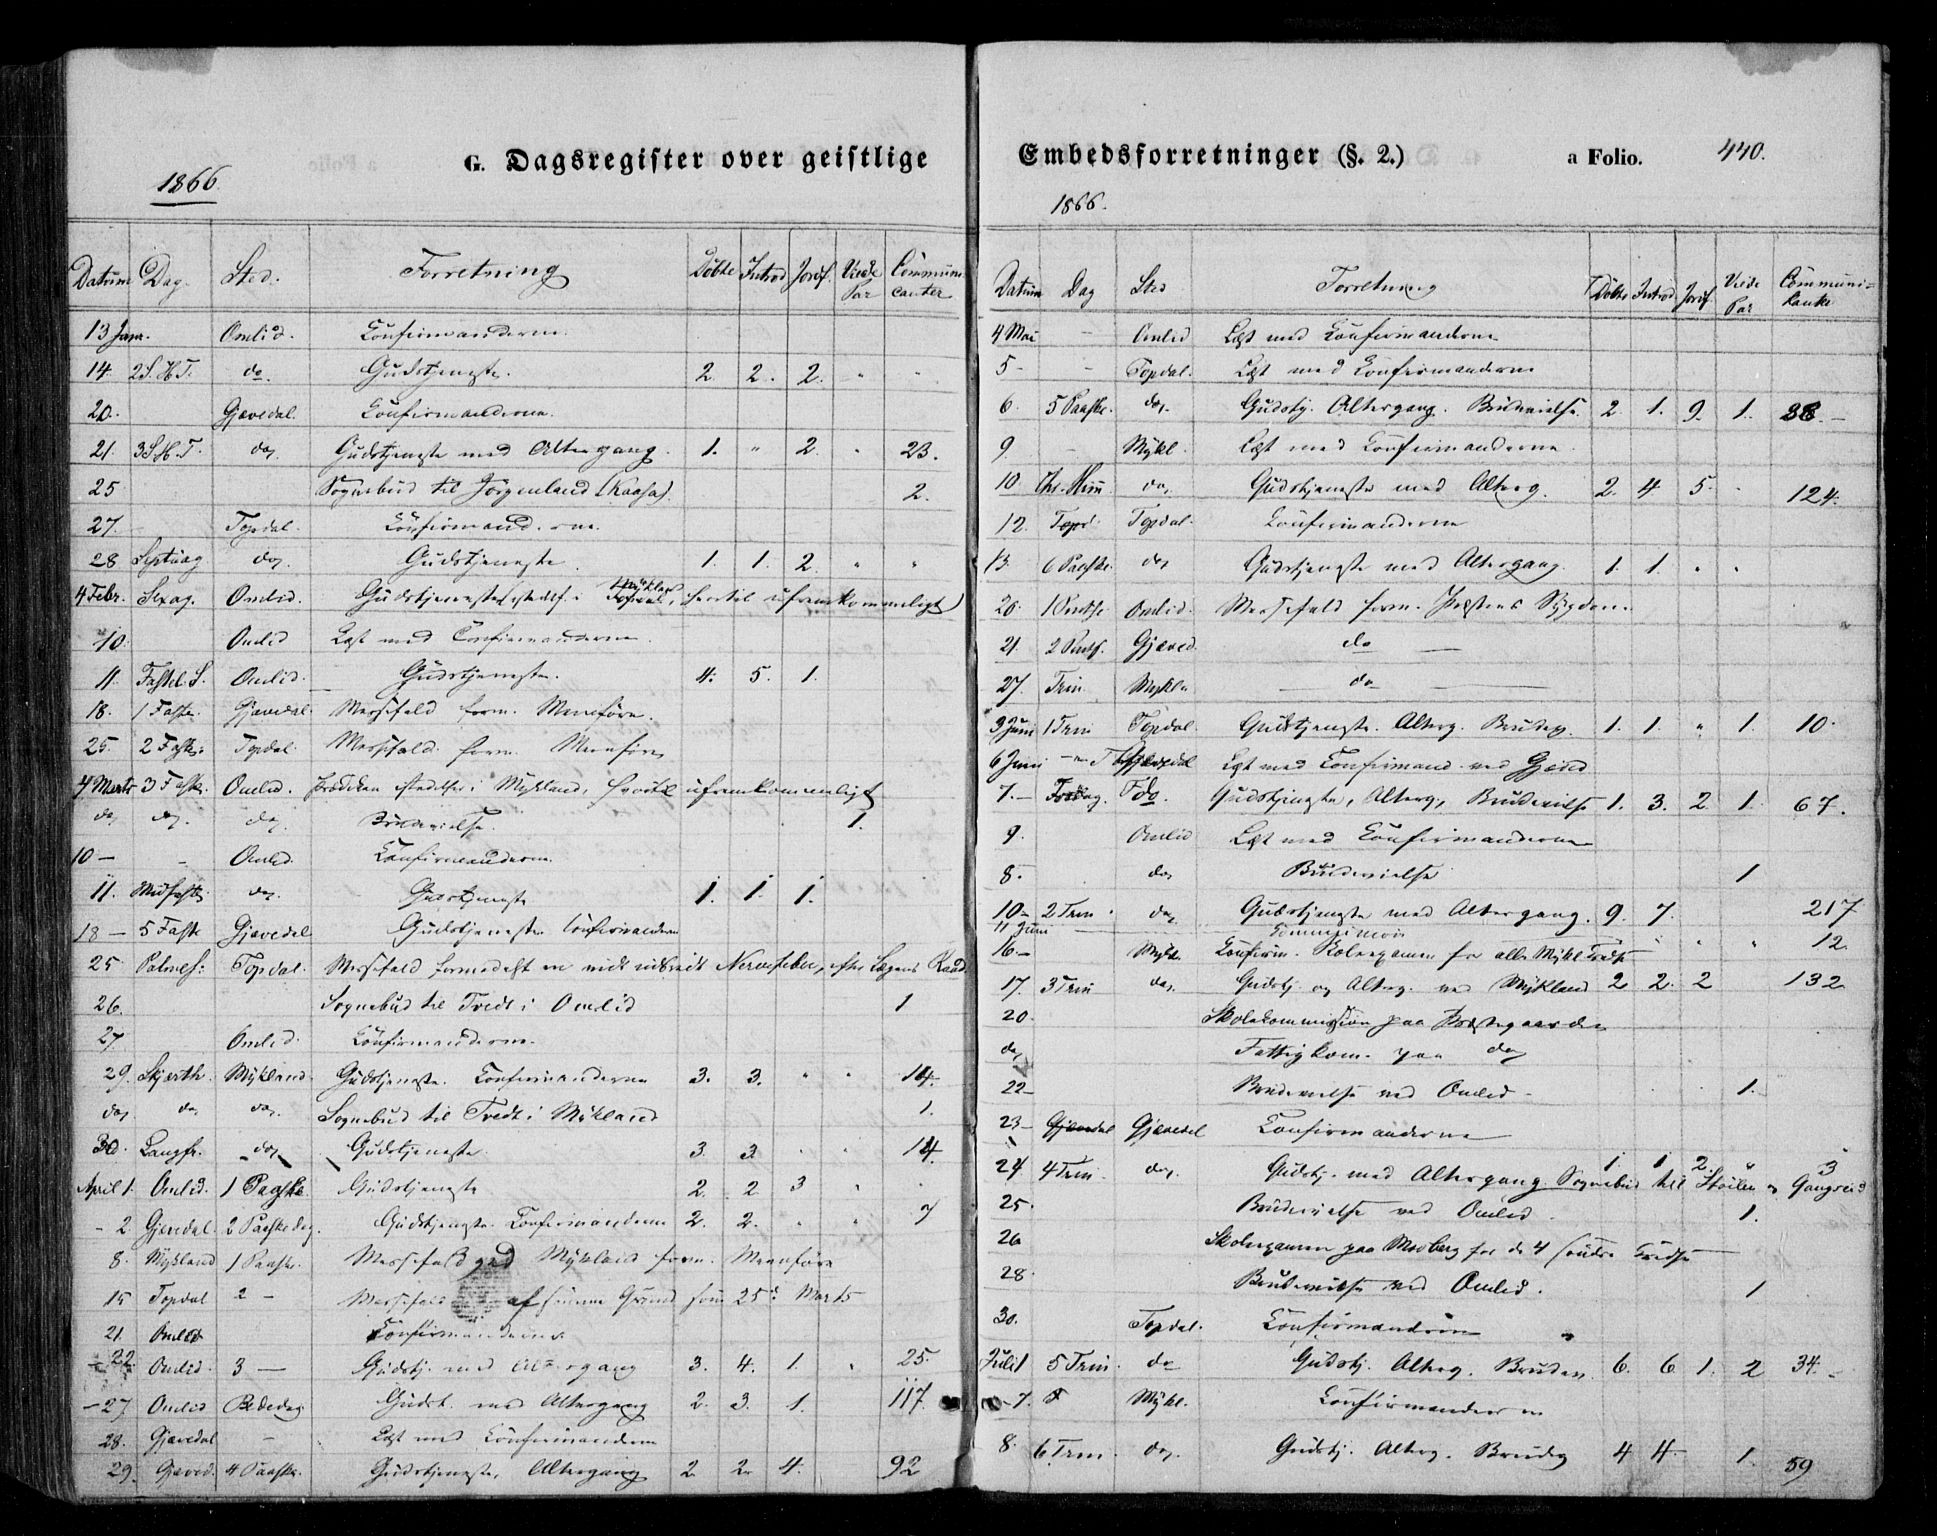 G. Dagsregister over geistlige
1866.
Datum Dag. Sted. Forretning Döbte Introd Jordf. Viede Par Communicanter
13 Janr. Omlid. Confirmanderne.
14. 2 S. H. T. do Gudstjeneste. 2. 2. 2. " "
20. Gjævedal. Confirmanderne.
21. 3 S H. T. do. Gudstjeneste med Altergang. 1. " 2. " 23.
25 Sognebud til Jörgenland (Kaasa). 2.
27. Topdal. Confirmanderne.
28 Septuag do. Gudstjeneste. 1. 1. 2. " "
4 Febr. Sexag. Omlid. Gudstjeneste istedetf. i Mykland, hvortil ufremkommeligt)
10. Omlid Læst med Confirmanderne.
11. Fastel. S. Omlid. Gudstjeneste. 4. 5. 1.
18. 1 Faste. Gjævedal. Messefald form. Meneföre.
25. 2 Faste. Topdal. Messefald form. Meneföre
4 Marts 3 Faste. Omlid. Prædiken istedetfor i Mykland, hvortil ufremkommeligt
do do. do. Brudevielse. 1.
10 – – Omlid. Confirmanderne.
11. Midfaste do. Gudstjeneste 1. 1. 1.
18 – 5 Faste Gjævedal Gudstjeneste Confirmanderne
25 Palmes: Topdal. Messefald formedelst en vidt udbredt Nervefeber, efter Lægens Raad.
26. Sognebud til Tvedt i Omlid 1
27. Omlid. Confirmanderne.
29. Skjærth. Mykland. Gudstjeneste. Confirmanderne 3. 3. " " 14.
do do do. Sognebud til Tvedt i Mykland 1.
30. Langfr. do. Gudstjeneste 3. 3. " " 14.
April 1. Omlid. 1 Paaske. Gudstjeneste 2. 2 3 "
- 2 Gjævedal. 2 Paaskedag. Gudstjeneste. Confirmanderne 2. 2. " " 7
8. Mykland 1 Paaske. Messefald ved Mykland form. Meneföre
15 Topdal 2 – Messefald af samme Grund som 25de Marts
21. Omlid Confirmanderne.
- 22. Omlid. 3 – Gudstj. med Altergang 3. 4. 1. " 25.
- 27 Omlid Bededag Gudst. med Altergang 2. 3. 1. 117.
28. Gjævedal – Læst med Confirmanderne
29. Gjæved. 4 Paaske. Gudstjeneste, Altergang 2. 2. 4. 92
Embedsforretninger (§. 2.) a Folio. 440.
1866.
Datum Dag Sted Forretning Döbte Introd Jordf. Viede Par Communikante
4 Mai – Omlid Læst med Confirmanderne
5 – – Topdal. Læst med Confirmanderne
6. 5 Paaske. do. Gudstj. Altergang. Brudevielse. 2. 1. 9. 1. 38.
9. – Mykl. Læst med Confirmanderne.
10. Chr. Him do. Gudstjeneste med Alterg. 2. 4 5. 124.
12. Topd. Topdal. Confirmanderne
13. 6 Paaske. do Gudstjeneste med Altergang. 1. 1. " "
20. 1 Pintse Omlid. Messefald form. Præstens Sygdom.
21. 2 Pintse. Gjæved. do –
27. Trin Mykl. – do –
3 Juni 1 Trin Topdal. Gudstjeneste. Alterg. Brudev. 1. 1. " 1. 10.
6 Juni Gjævedal Læst med Confirmand. ved Gjæved
7. – do. Gudstjeneste, Alterg., Brudevielse 1. 3. 2 1. 67.
9. Omlid Læst med Confirmanderne
8. do Brudevielse 1
10 – 2 Trin do. Gudstjeneste med Altergang. 9. 7. 217
11 Juni Kommunion 12
16. – Mykl. Confirm. Skoleexamen for alle Mykl. Kredse
17. 3 Trin do. Gudstj og Alterg. ved Mykland 2 2. 2 132
20. Skolekommission paa Præstegaarden
do Fattigkom. paa do
22 – Brudevielse ved Omlid – 1.
23 – Gjævedal Gjævedal Confirmanderne
24 4 Trin. do. Gudstj. med Altergang. Sognebud til og 1 1 2. " 3
25. Brudevielse ved Omlid. 1.
26 Skoleexamen paa for de 4 söndre Kredse
28. Brudevielse ved Omlid. 1
30. Topdal. Confirmanderne
Juli 1 5 Trin. do Gudstj. Alterg. Brudev. 6. 6 1. 2 34.
7. Mykl. Confirmanderne
8. 6 Trin. do. Gudstj. Alterg. Brudev 4 4 1. 59